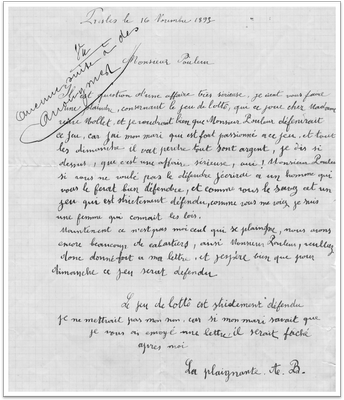 le 16 Novembre 1893
Vu
aucune suite à des
anonymes
Monsieur Pouleur
Il est question d'une affaire très serieuse, je veut vous faire
une plainte, consernant le jeu de lotto, que ce joue chez Madame
veuve Mollet, et je voudrait bien que Monsieur Pouleur défenirait
ce jeu, car jai mon mari que est fout passionné a ce jeu, et tout
les dimanche il vat perdre tout sont argent, je dis si
dessus, que c'est une affaire sérieuse, oui! Monsieur Pouleur
si vous ne voulé pas le défendre jecrirai a un homme qui
vous le ferat bien défendre, et comme vous le savez cet un
jeu qui est strictement défendu, comme vous me voiez je suis
une femme qui connait les lois.
Maintenant ce n'est pas moi ceul qui se plainpe, nous avons
encore beaucoup de cabartiers, ainsi Monsieur Pouleur, veuillez
donc donné fort a ma lettre. et j'espère bien que pour
dimanche ce jeu serat défendu
Le jeu de lottô est strictement défendu
je ne mettrait pas mon nom, car si mon mari savait que
je vous ai envoyé une lettre il seroit faché
apres moi
La plaignante A. B.